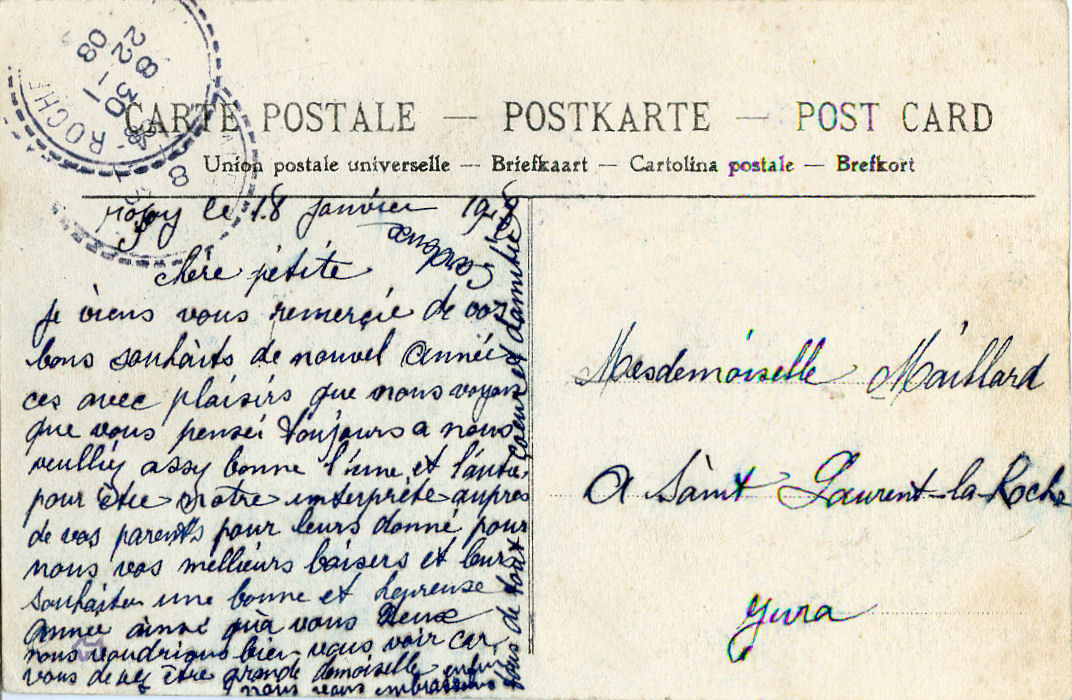 CARTE POSTALE — POSTKARTE — POST CARD
Union postale universelle — Briefkaart — Cartolina postale — Brefkort
8 30
22 - 1
08
ROCHE
le 18 janvier 19
chère petite
je viens vous remerçie de vos
bons souhaits de nouvel année
ces avec plaisirs que nous voyons
que vous penseé toujours a nous
veulliez assy bonne l'une et l'autre
pour être notre interprète aupres
de vos parents pour leurs donné pour
nous vos mellieurs baisers et leurs
souhaiter une bonne et heureuse
année ainsi qu'à vous deux
nous voudrions bien vous voir car
vous devez être grande demoiselle enfin
nous vous embrassons
tous de tout coeur et d'amitié
Mesdemoiselle Maillard
A Sàint Laurent-la-Roche
Jura